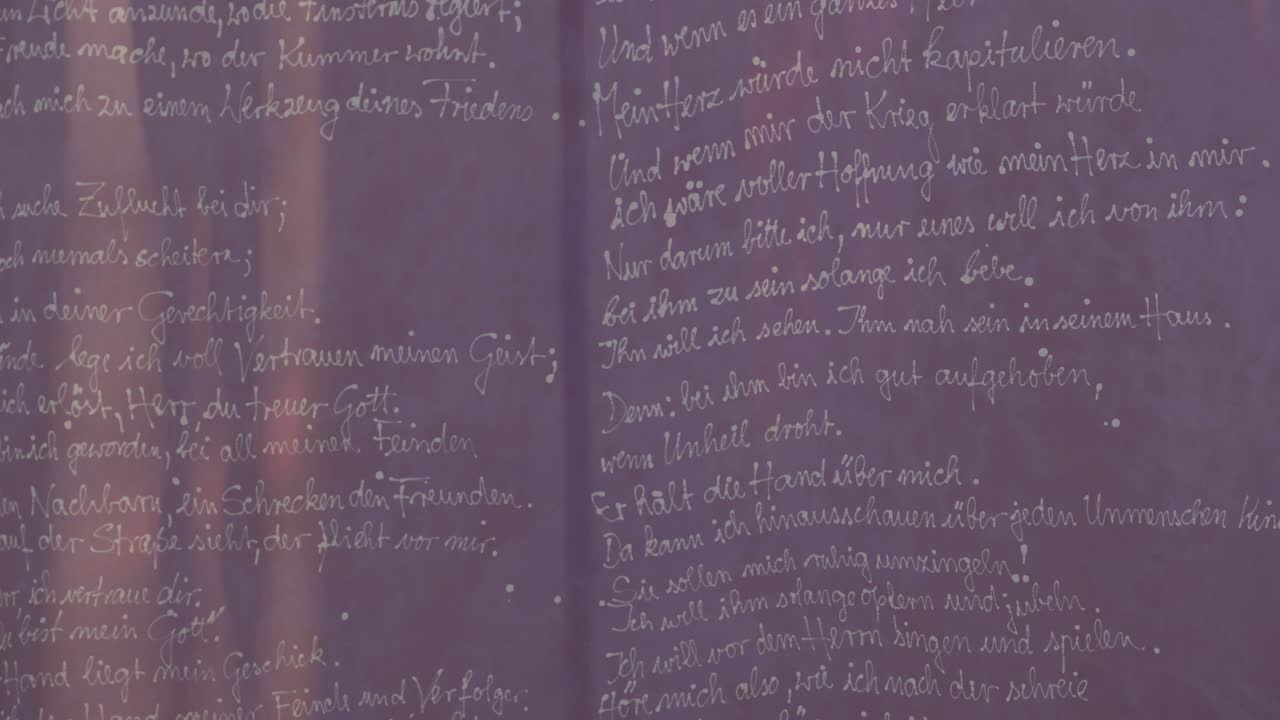 Licht anzünde, wo die Finsternis regiert;
Freude mache, wo der Kummer wohnt.
mich zu einem Werkzeug deines Friedens.
suche Zuflucht bei dir;
niemals scheitern;
in deiner Gerechtigkeit.
lege ich voll Vertrauen meinen Geist;
erlöst, Herr, du treuer Gott.
bin ich geworden, bei all meinen Feinden
Nachbarn, ein Schrecken den Freunden.
auf der Straße sieht, der flieht vor mir.
ich vertraue dir.
bist mein Gott".
Hand liegt mein Geschick.
Hand meiner Feinde und Verfolger.
Und wenn es ein ganzes Heer
Mein Herz würde nicht kapitulieren.
Und wenn mir der Krieg erklart würde
ich wäre voller Hoffnung wie mein Herz in mir.
Nur darum bitte ich, nur eines will ich von ihm:
bei ihm zu sein solange ich lebe.
Ihn will ich sehen. Ihm nah sein in seinem Haus.
Denn: bei ihm bin ich gut aufgehoben,
wenn Unheil droht.
Er hält die Hand über mich.
Da kann ich hinausschauen über jeden Unmenschen
Sie sollen mich ruhig umzingeln!
Ich will ihm solange opfern und jubeln.
Ich will vor dem Herrn singen und spielen.
Höre mich also, wie ich nach dir schreie